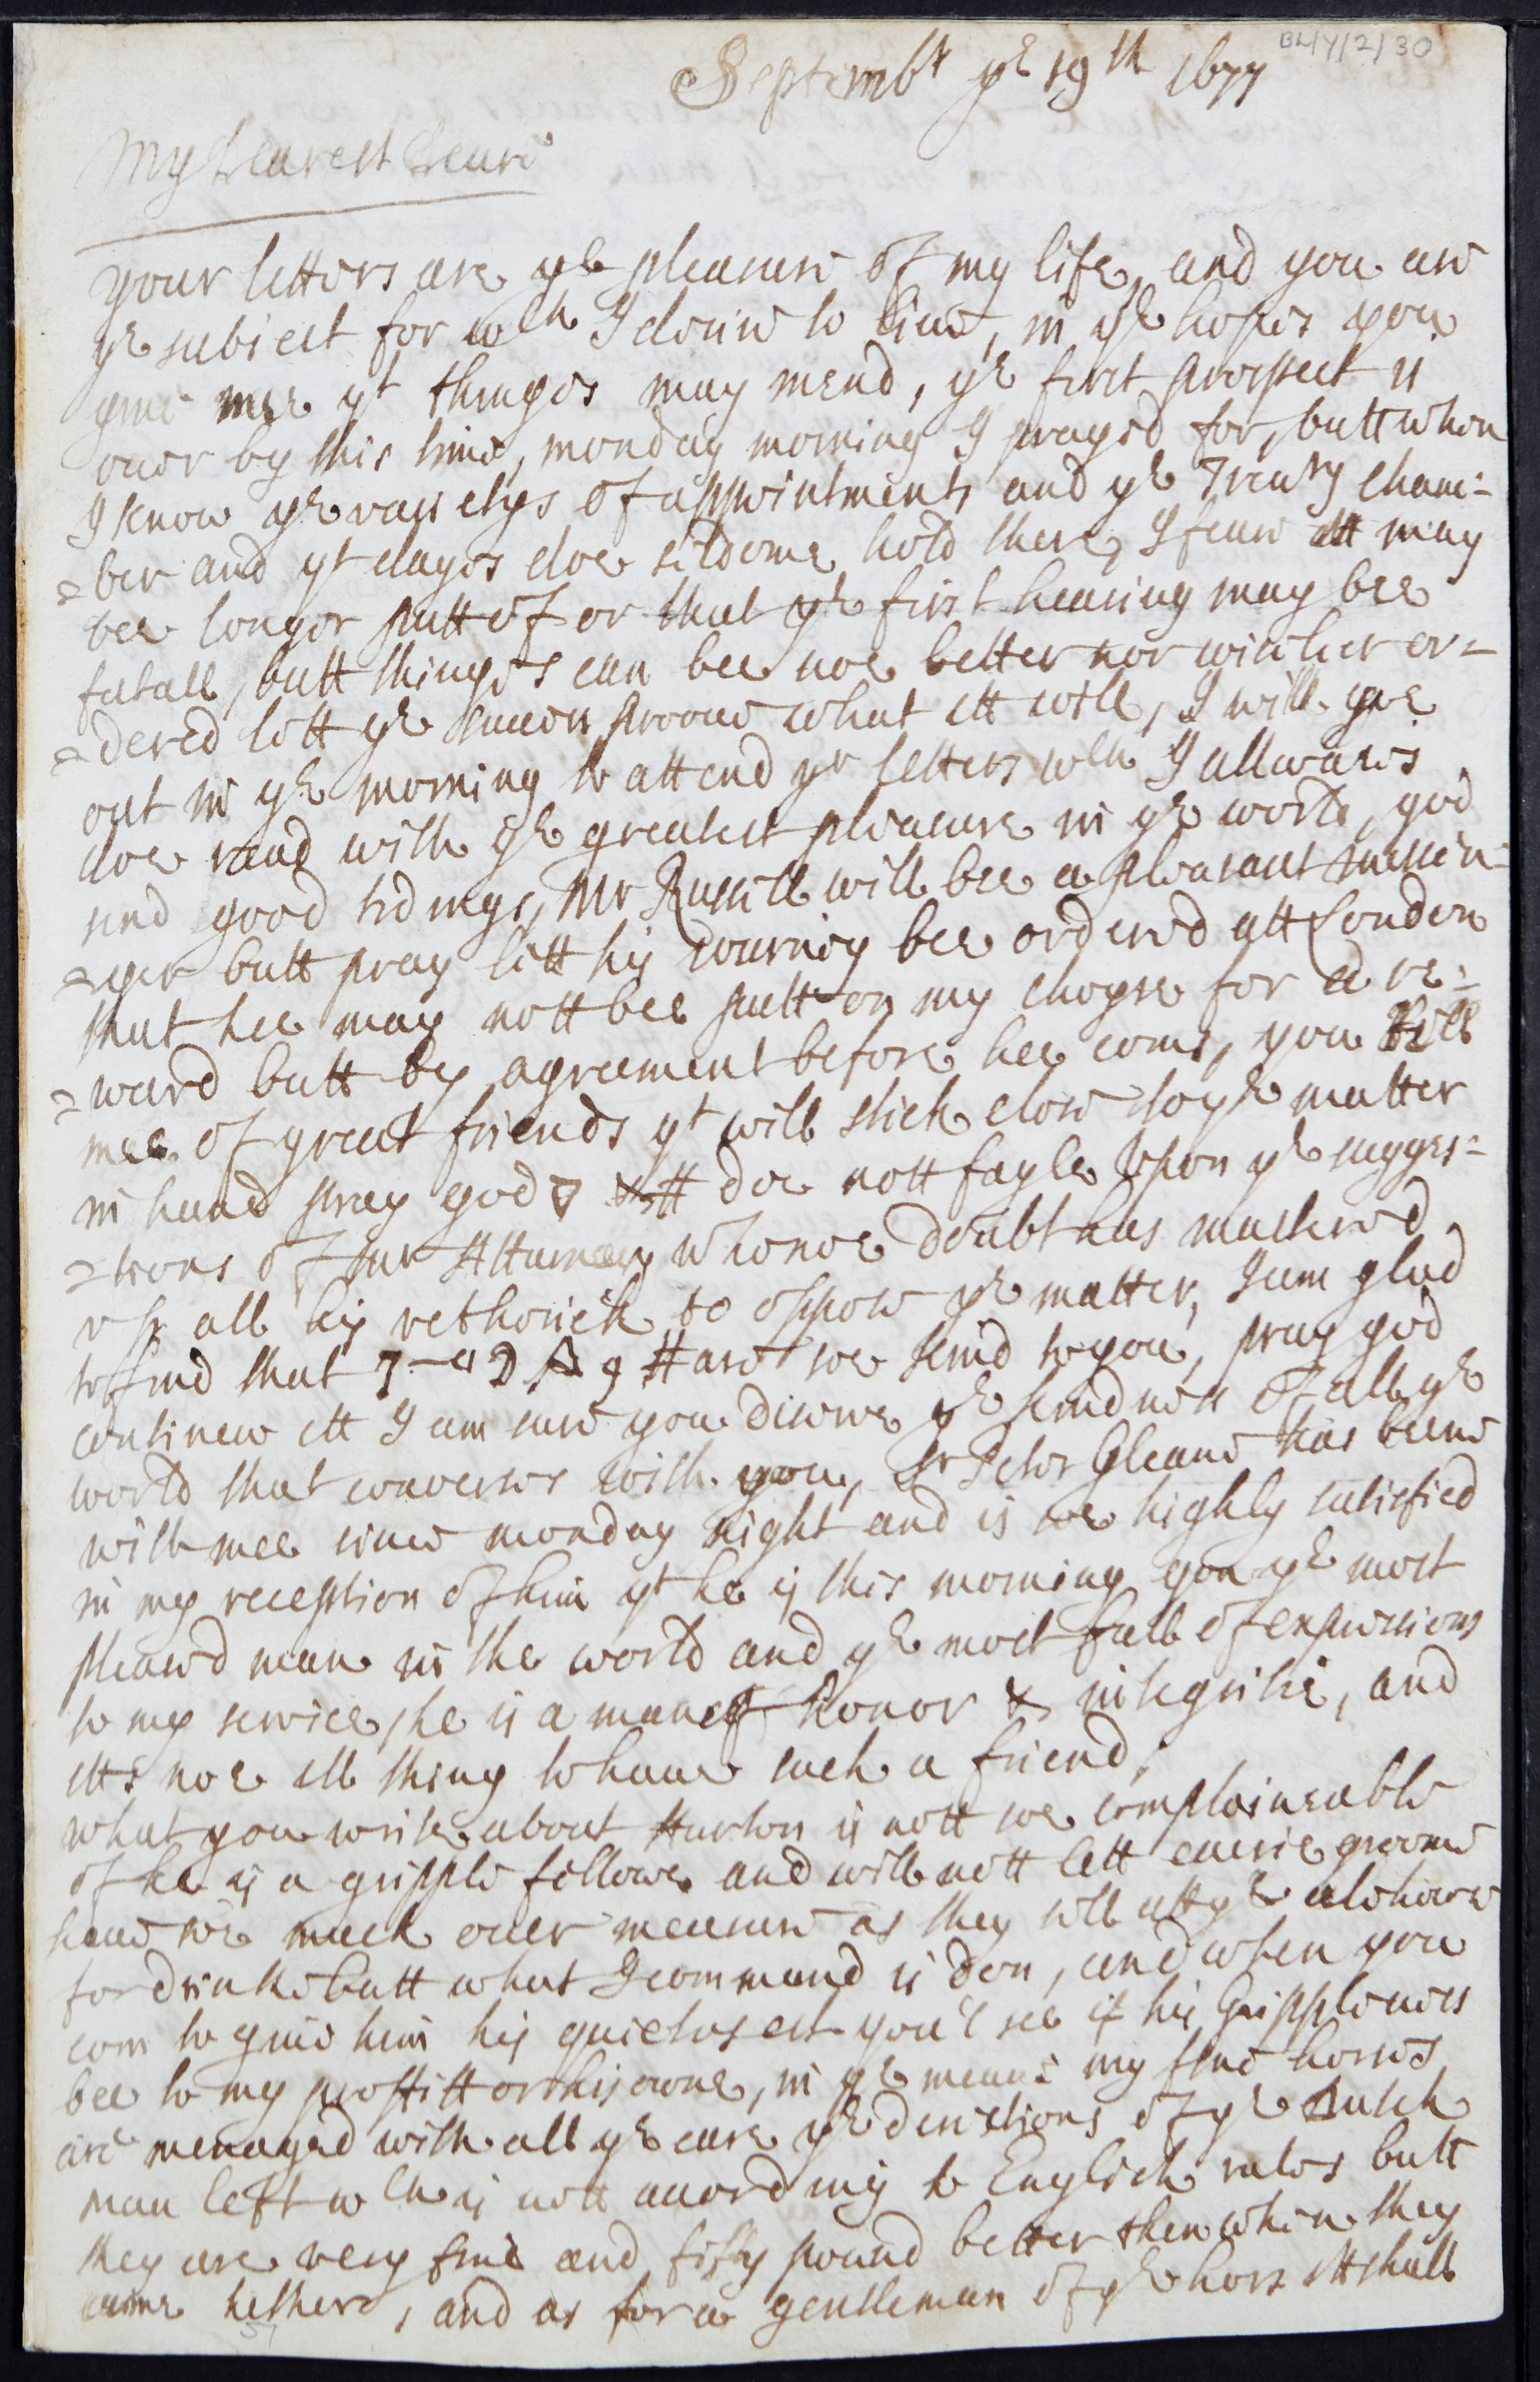 BL/Y/2/30
Septembr ye 19th 1677
My dearest deare
your letters are ye pleasure of my life, and you are
ye subiect for wch I desire to liue, in ye hopes you
giue mee yt things may mend, ye first prospect is
ouer by this time, monday morning I prayed for, butt when
I know ye varietys of appointments and ye Treasry cham=
=ber and yt dayes doe seldome hold there, I feare itt may
bee longer putt of or that ye first hearing may bee
fatall, butt things can bee noe better nor wiselier or=
=dered lett ye success prooue what itt will, I will goe
out in ye morning to attend yr letters wch I allwaies
doe read with ye greatest pleasure in ye world, god
send good tidings, Mr Russill will bee a pleasant messen=
=ger butt pray lett his Journey bee orderd att London
that hee may nott bee putt on my choyse for a re=
=ward butt by agreement before hee come, you tell
mee of great friends yt will stick close to ye matter
in hand pray god itt doe nott fayle upon ye sugges=
=tions of our Atturney who noe doubt has musterd
vp all his rethorick to oppose ye matter, I am glad
to find that are soe kind to you, pray god
continew itt I am sure you deserue ye kindness of all ye
world that conuerses with you, Sr Peter Gleane has beene
with mee since monday night and is soe highly satisfied
in my reception of him yt he is this morning gon ye most
pleasd man in the world and ye most full of expressions
to my service, he is a man of honor & integritie, and
itts noe ill thing to haue such a friend,
what you write about Harton is nott soe complaineable
of he is a gripple fellow and will nott lett euerie groome
haue soe much ouer measure as they sell att ye alehouse
for drinke butt what I command is don, and when you
com to giue him his quietus est you'l see if his Grippleness
bee to my proffitt or his owne, in ye meane my fine horses
are menaged with all ye care ye derictions of ye dutch
man left wch is nott according to English rules butt
they are very fine and fifty pound better then when they
came hether, and as for a gentleman of ye hors itt shall